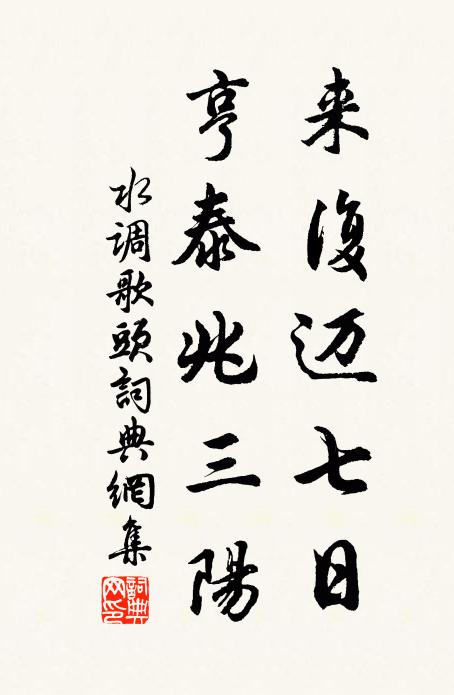 来復迈七日
亨泰兆三陽
水调歌頭詞典網集
詞典網印